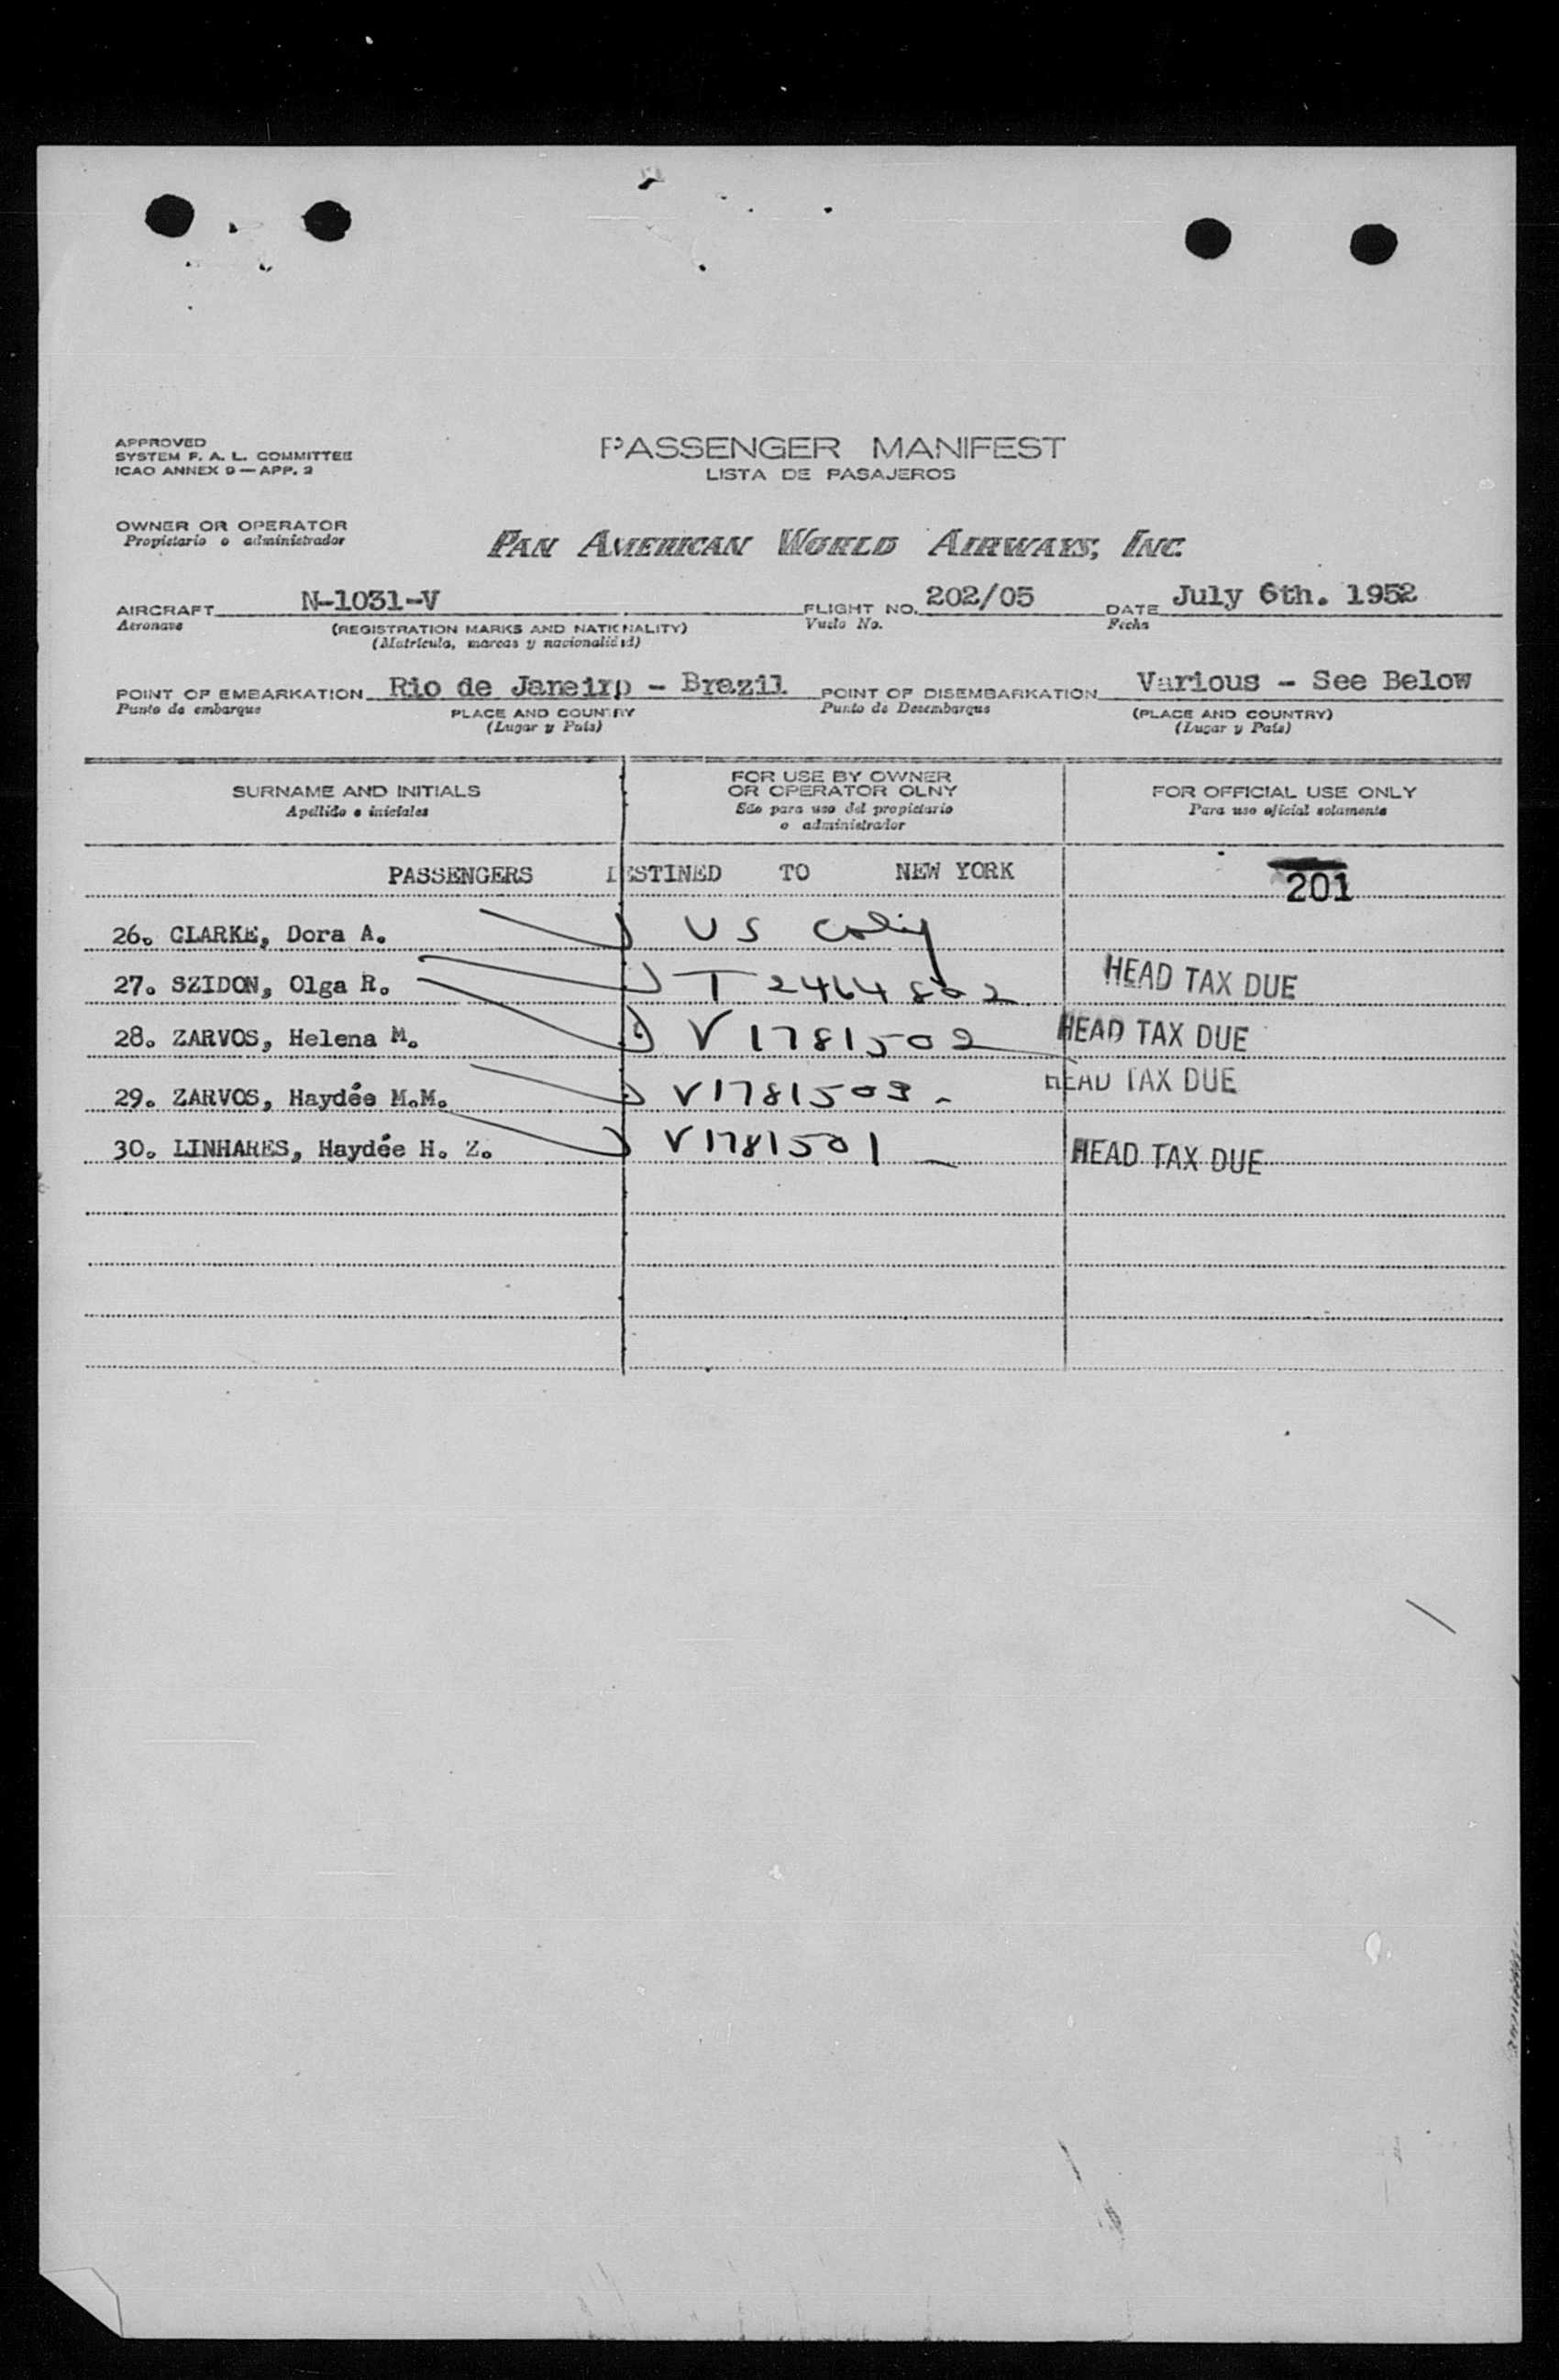 APPROVED
SYSTEM F. A. L. COMMITTEE
ICAO ANNEX 9 — APP. 2
PASSENGER MANIFEST
LISTA DE PASAJEROS
OWNER OR OPERATOR
Propietario o administrador
PAN AMERICAN WORLD AIRWAYS, INC.
AIRCRAFT N-1031-V FLIGHT NO. 202/05 DATE July 6th. 1952
Aeronave (REGISTRATION MARKS AND NATIONALITY) Vuelo No. Fecha
(Matrícula, marcas y nacionalidad)
POINT OF EMBARKATION Rio de Janeiro - Brazil POINT OF DISEMBARKATION Various - See Below
Punto de embarque PLACE AND COUNTRY Punto de Desembarque (PLACE AND COUNTRY)
(Lugar y País) (Lugar y País)
SURNAME AND INITIALS
Apellido e iniciales
FOR USE BY OWNER
OR OPERATOR OLNY
Sólo para uso del propietario
o administrador
FOR OFFICIAL USE ONLY
Para uso oficial solamente
PASSENGERS DESTINED TO NEW YORK 201
26. CLARKE, Dora A. US
27. SZIDON, Olga R. T 2464802 HEAD TAX DUE
28. ZARVOS, Helena M. V 1781502 HEAD TAX DUE
29. ZARVOS, Haydée M.M. V1781503 - HEAD TAX DUE
30. LINHARES, Haydée H. Z. V1781501 - HEAD TAX DUE